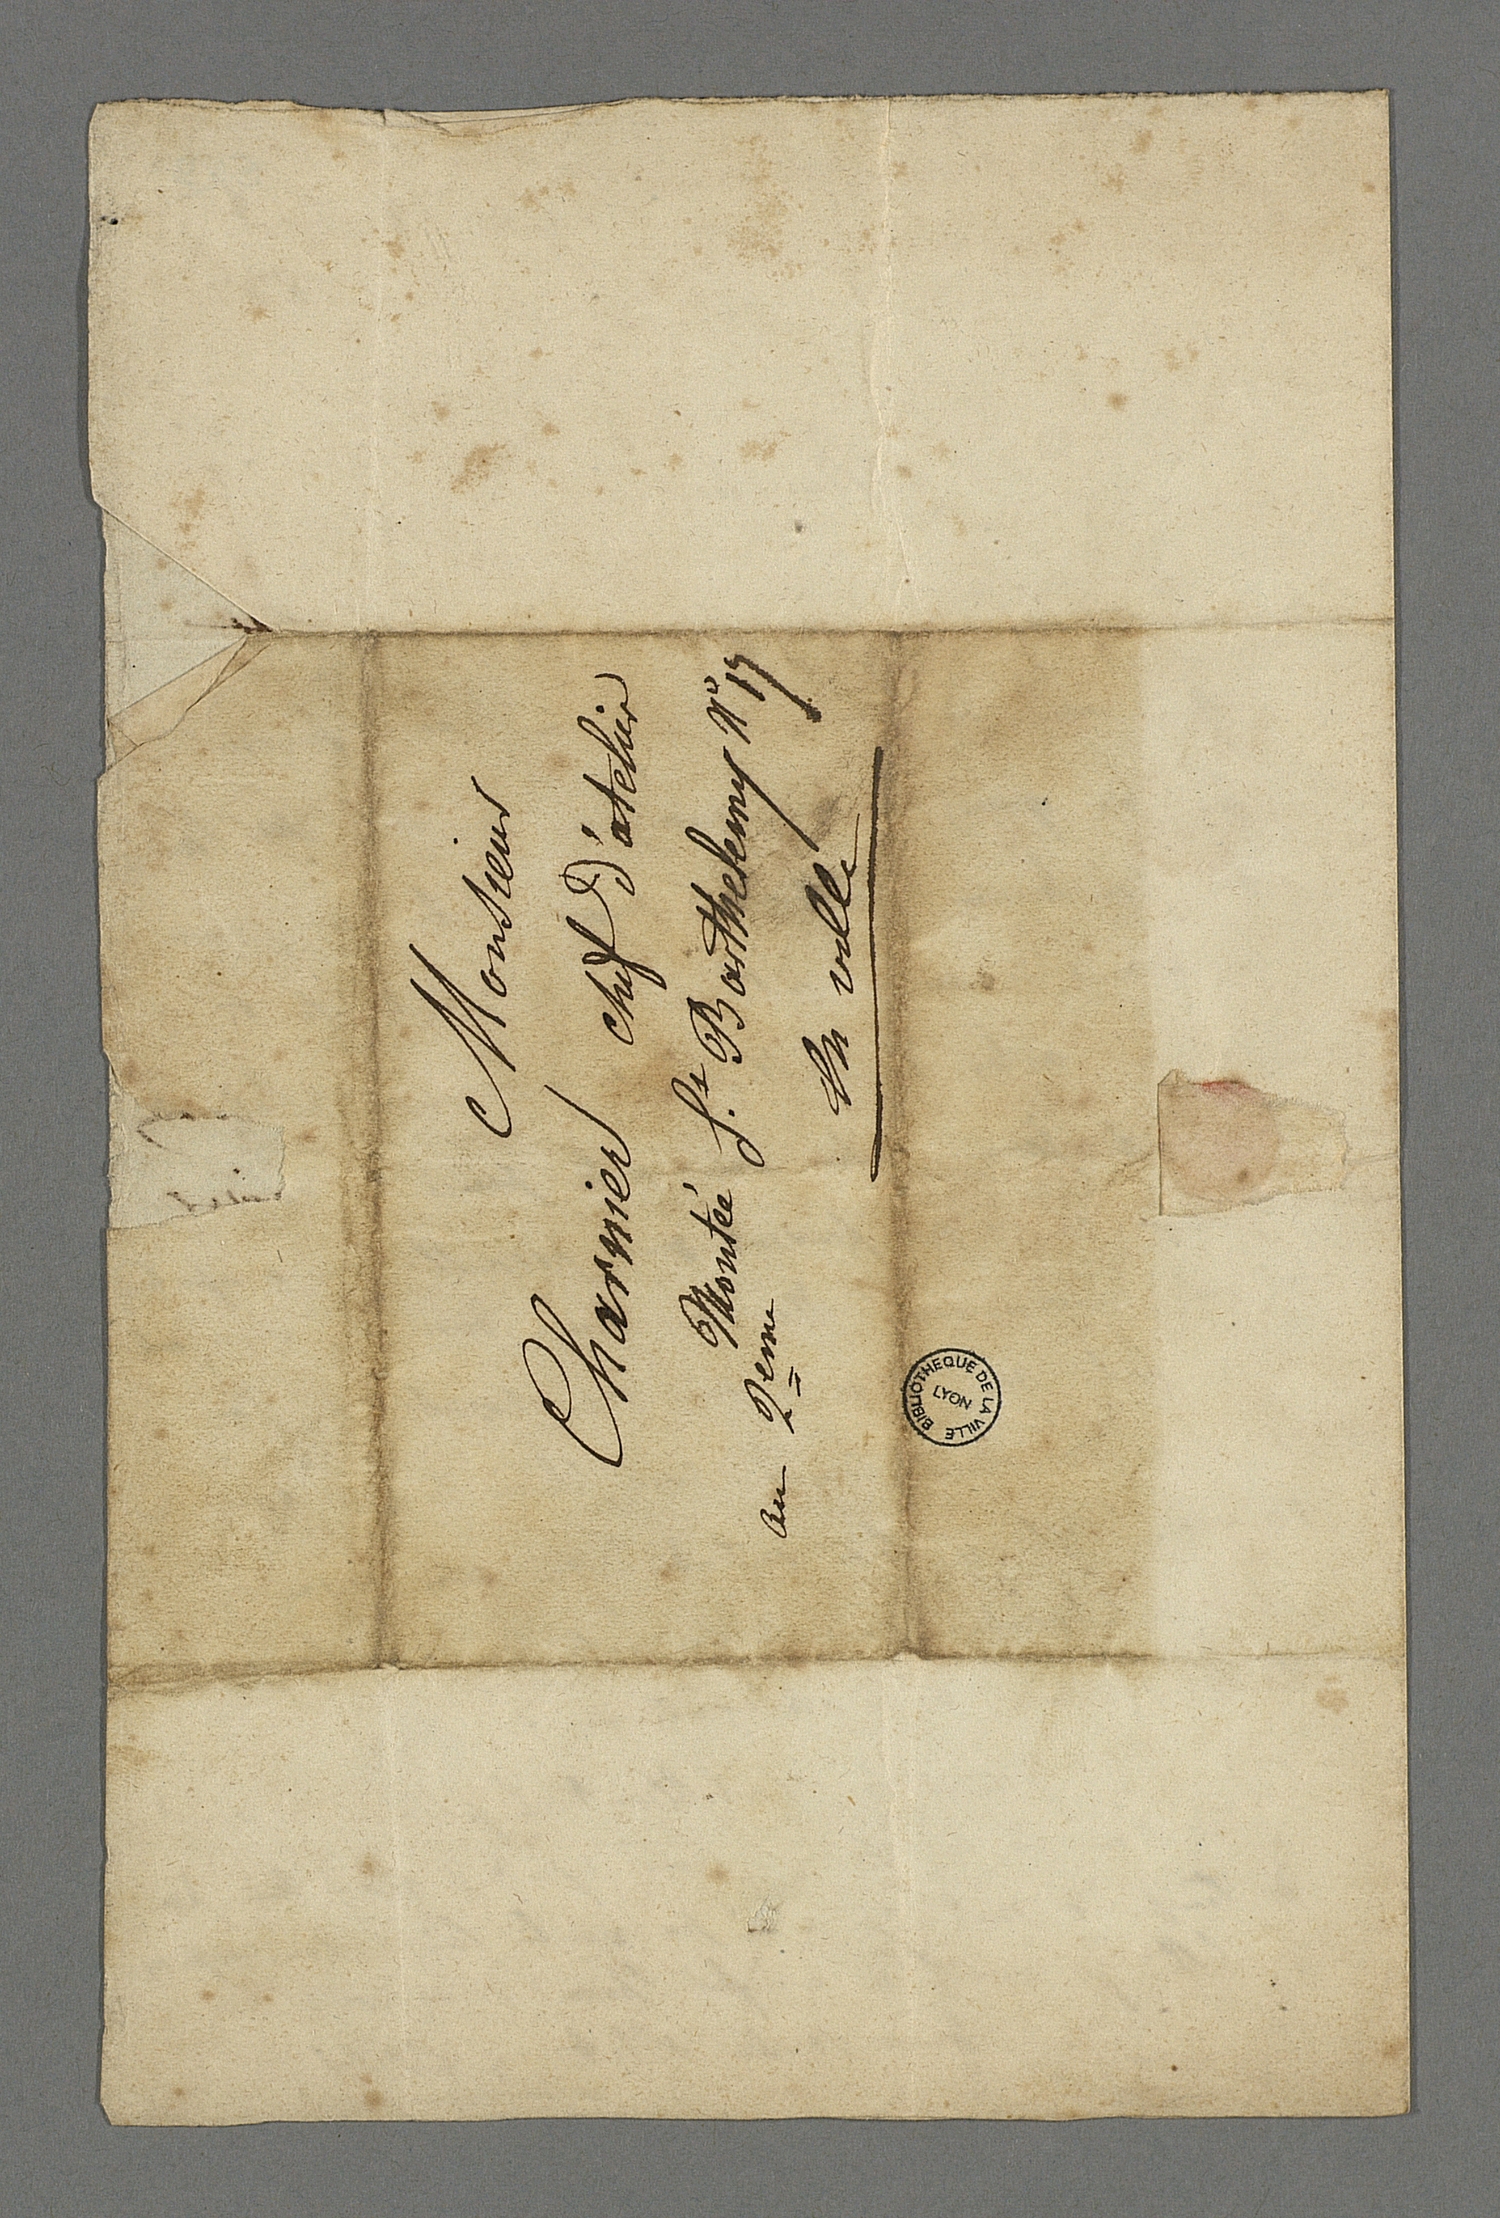 Monsieur
Charnier chef d'atelier
Montée St Barthelemy N° 17
au 2eme
En ville
BIBLIOTHEQUE DE LA VILLE
LYON